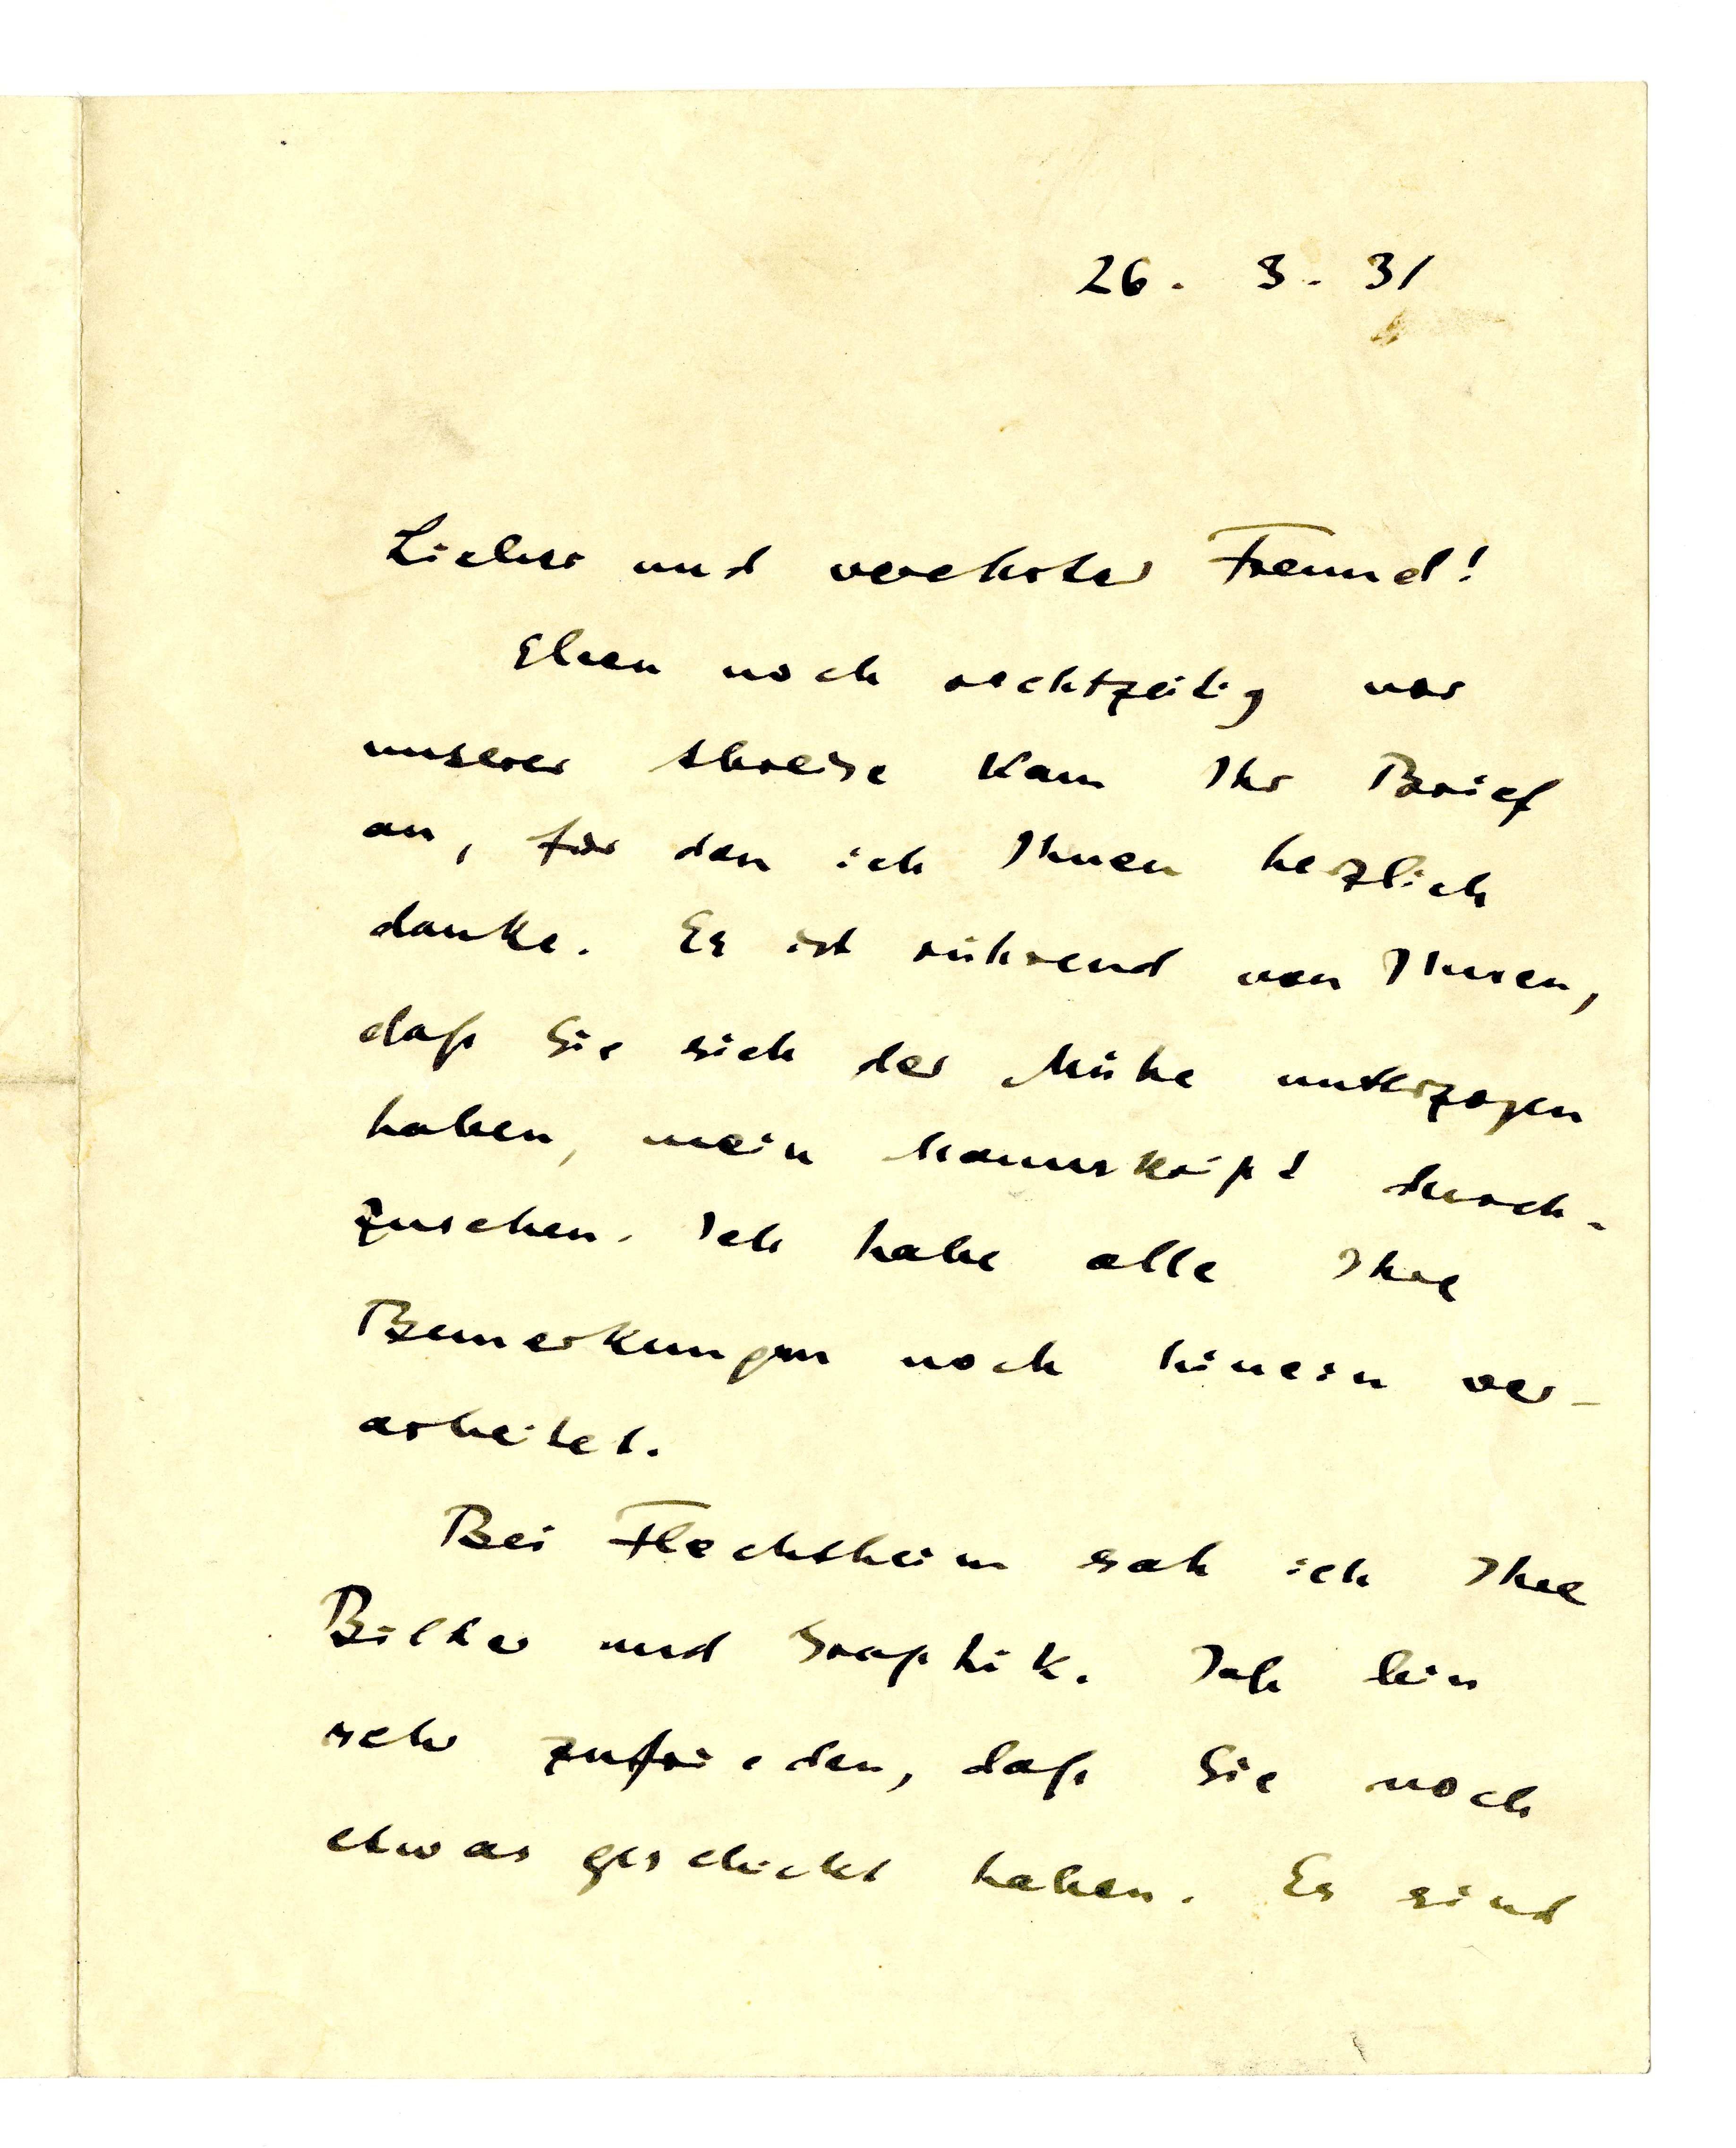 26. 3. 31
Lieber und verehrter Freund!
Eben noch rechtzeitig vor
unserer Abreise kam Ihr Brief
an, für den ich Ihnen herzlich
danke. Es ist rührend von Ihnen,
daß Sie sich der Mühe unterzogen
haben, mein Manuskript durch-
zusehen. Ich habe alle Ihre
Bemerkungen noch hinein ver-
arbeitet.
Bei Flechtheim sah ich Ihre
Bilder und Graphik. Ich bin
sehr zufrieden, daß Sie noch
etwas geschickt haben. Es sind